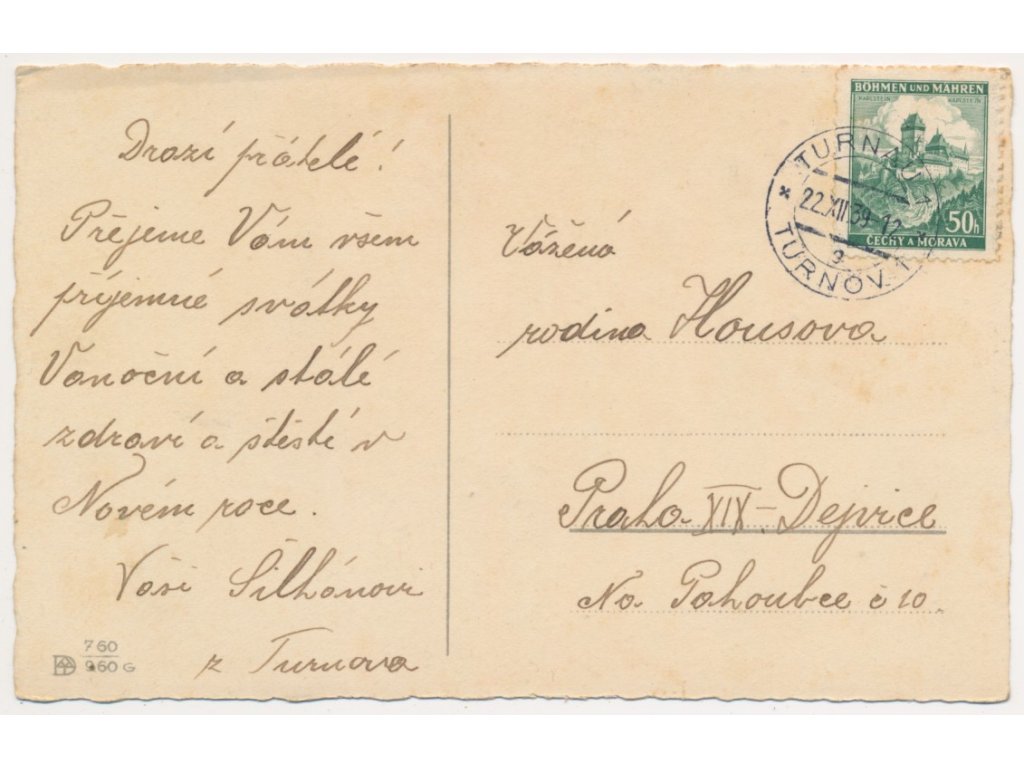 Drazí přátelé!
Přejeme Vám všem
příjemné svátky
Vanoční a stálé
zdraví a štěstí v
Novém roce.
Vaši Šilhánovi
z Turnova
760
960 G
BÖHMEN UND MÄHREN
KARLSTEIN KARLŠTEJN
50h
ČECHY A MORAVA
TURNAU 1
22.XII.39-12
a
TURNOV 1
Vážená
rodina Housova
Praha XIX-Dejvice
Na Pahoubce č 10.